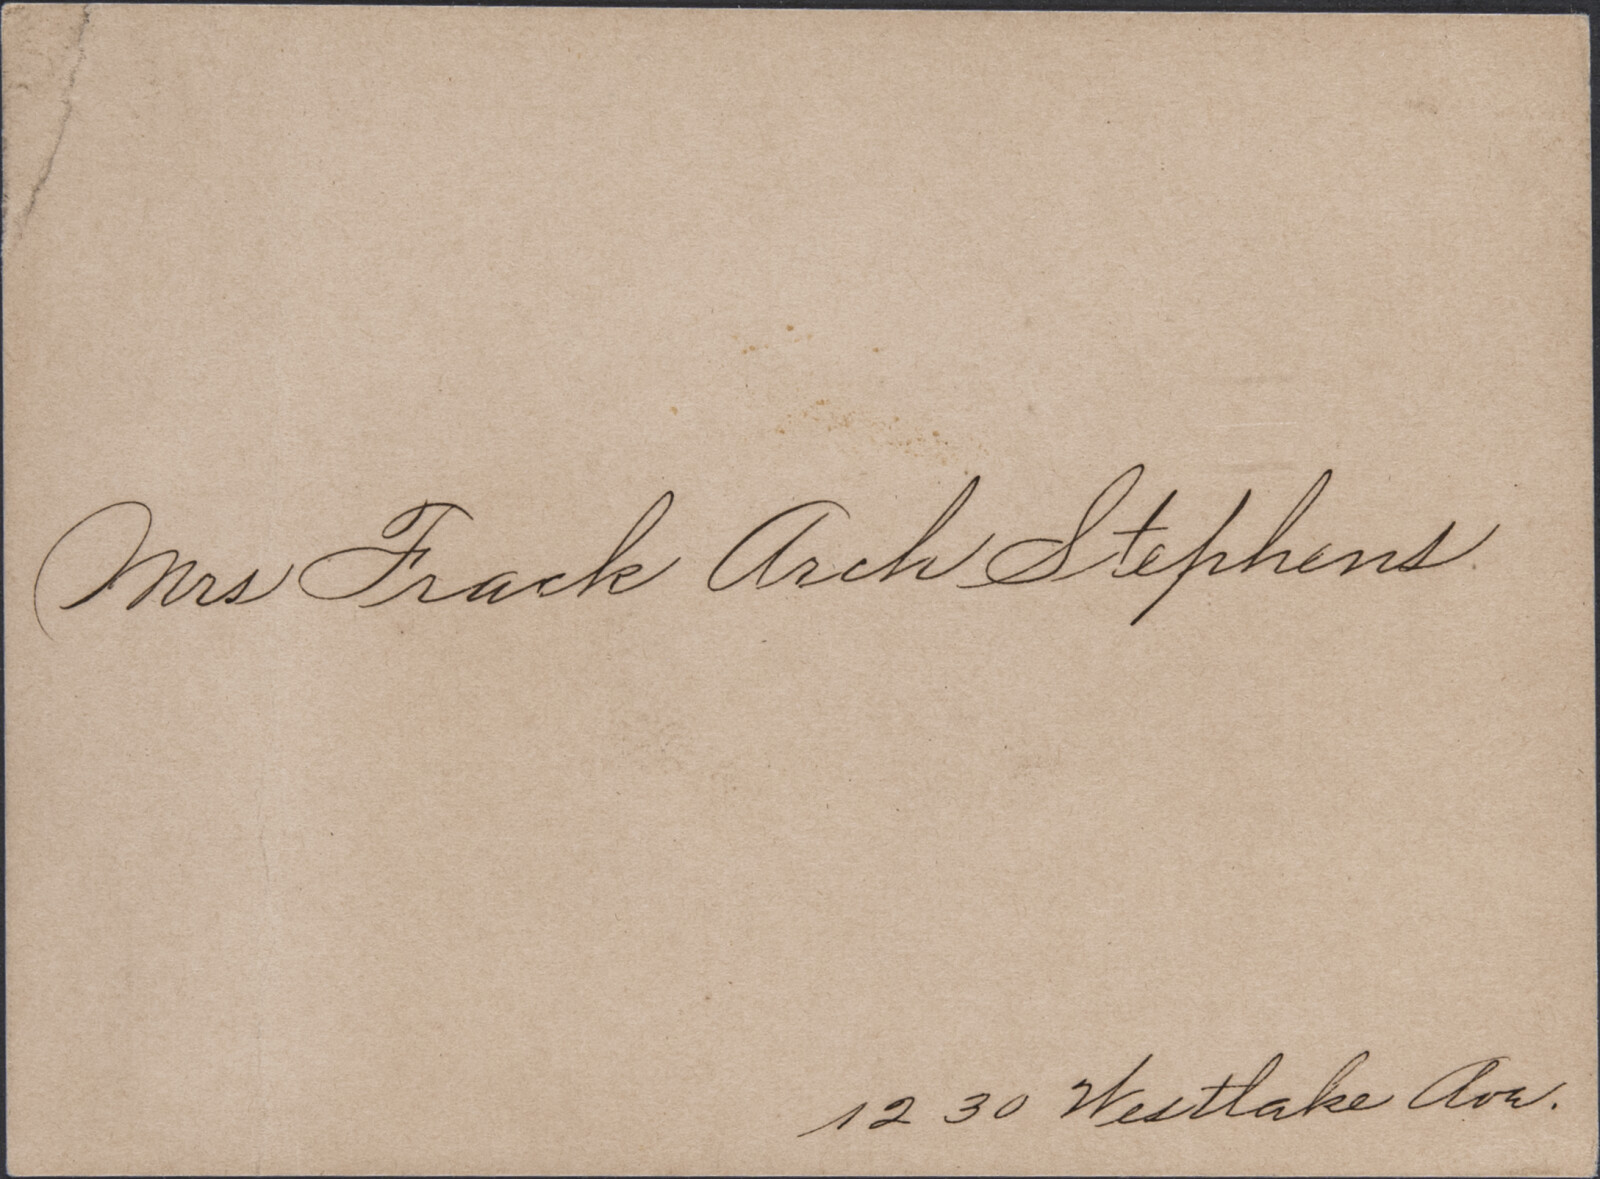 Mrs Frack Arch Stephens.
1230 Westlake Ave.